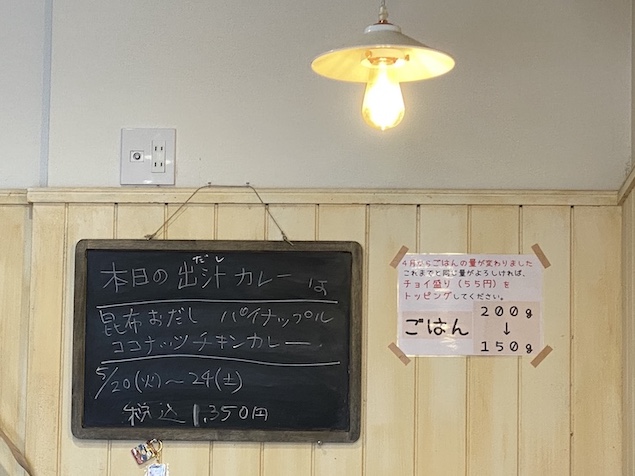 だし
本日の出汁カレーは
昆布おだし パイナップル
ココナッツチキンカレー
5/20(火)～24(土)
税込 1,350円
4月からごはんの量が変わりました
これまでと同じ量がよろしければ、
チョイ盛り（５５円）を
トッピングしてください。
ごはん
２００g
↓
１５０g